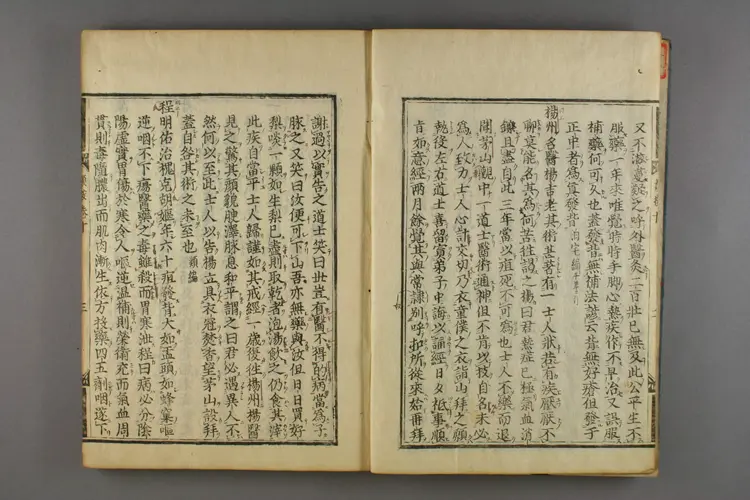 又不溶意疑之呼外醫灸二百壯已無及此公平生不
服藥一年來唯覺時時手脚心熱疾作不早治又誤服
補藥何可久也蓋發背無補法諺云背無好瘡但發于
正中者為真發背
楊州名醫楊吉老其術甚著有一士人狀若有疾厭厭不
聊寞能名其為何苦往謁之楊曰君熱症已極氣血消
鑠且盡自此三年當以疽死不可為也士人不樂而退
聞茅山觀中一道士醫術通神但不肯以技自名未必
為人致力士人心計交切乃衣童僕之衣詣山拜之願
執役左右道士喜留寘弟子中誨以誦經日夕祗事順
旨如意經兩月餘覺其與常隷別呼扣所從來始再拜
謝過以實告之道士笑曰世豈有醫不得的病當為子
脉之又笑曰汝便可下山吾亦無藥與汝但日日買好
梨啖一顆如生梨已盡則取乾者泡湯飲之仍食其滓
此疾自當平士人歸謹如其戒經一歲復往楊州楊醫
見之驚其顏貌腴澤脉息和平謂之曰君必遇異人不
然何以至此士人以告楊立具衣冠焚香望茅山設拜
蓋自咎其術之未至也 類編
程明佑治槐充胡嫗年六十疽發背大如盂頭如蜂窠嘔
逆咽不下瘍醫藥之毒雖殺而胃寒泄程曰病必分陰
陽虛實胃傷於寒令人嘔逆溫補則榮衛充而氣血周
貫則毒隨膿出而肌肉漸生依方投藥四五劑咽遂下